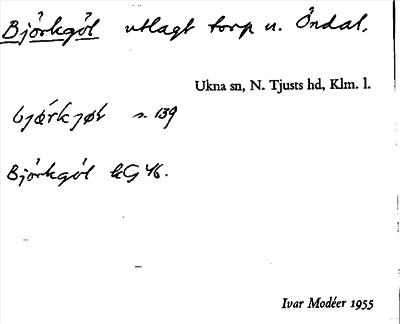 Björkgöl utlagt torp u. Öndal.
Ukna sn, N. Tjusts hd, Klm. l.
s. 139
Björkgöl EG 46.
Ivar Modéer 1955